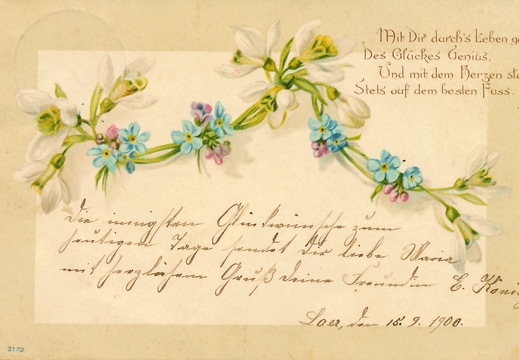 Mit Dir durch's Leben
Des Glückes Genius,
Und mit dem Herzen
Stets auf dem besten Fuss.
Die innigsten Glückwünsche zum
heutigen Tage sendet Dir liebe Maria
mit herzlichem Gruß Deine Freundin E. König
Laer, den 15. 9. 1900.
2172